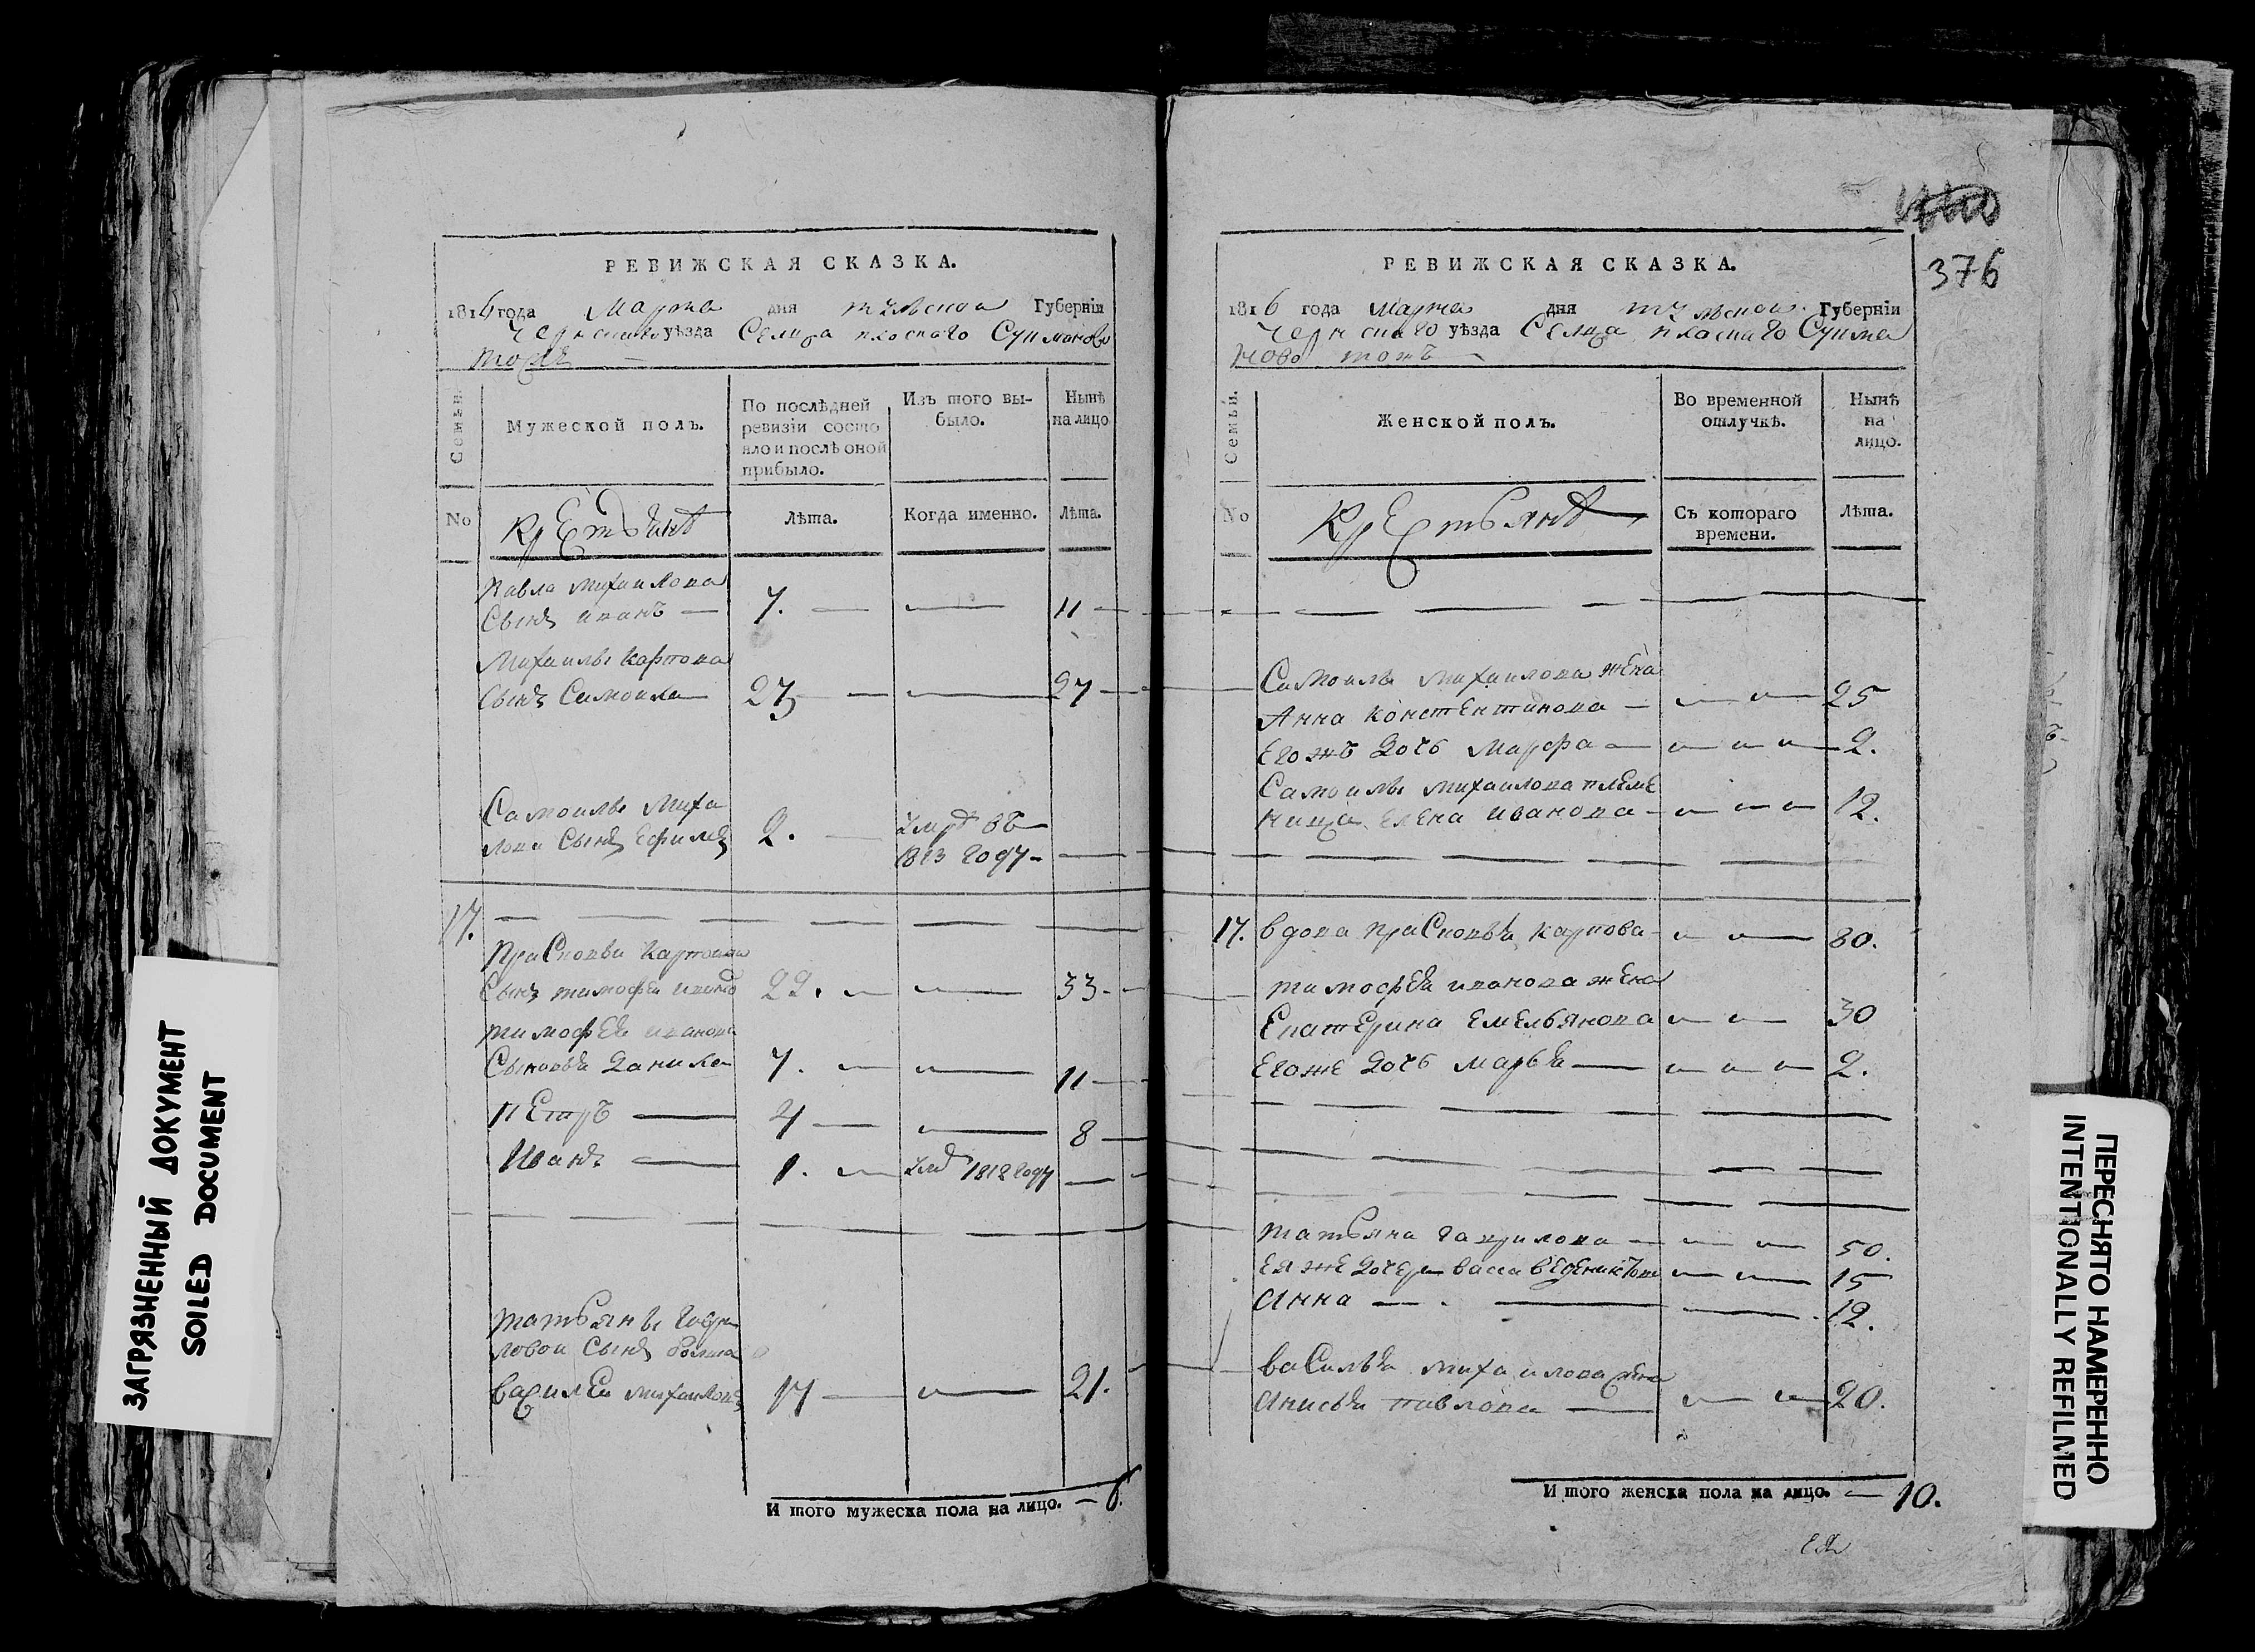 РЕВИЖСКАЯ СКАЗКА.
1816 года Марта дня тулской Губернiи
Чернскаго уѣзда Селца плоскаго Сумоново
тожъ
Семьи.
Мужеской полъ.
По послѣдней
ревизiи состо
яло и послѣ оной
прибыло.
Изъ того вы-
было.
Нынѣ
на лицо
No
Крестьянъ
Лѣта.
Когда именно.
Лѣта.
Павла михаилова
Сынъ иванъ — 7. — — 11
Михаилы карпова
сынъ Самоила — 27 — — 27
Самоилы миха
лова Сынъ Ефимъ 2. — умръ въ
1813 году —
17.
Прасковьи Карповы
Сынъ тимофеи ивановъ 22. — — 33.
тимофея иванова
Сыновья Данила 7. — — 11
петръ — 4 — — 8
Иванъ — 1. — умр 1812 году —
татьяны гаври
ловои Сынъ
василеи михаиловъ 17 — — 21.
И того мужеска пола на лицо. — 6.
376
РЕВИЖСКАЯ СКАЗКА.
1816 года Марта дня тулской Губернiи
Чернскаго уѣзда Селца плоскаго Сумо
ново тожъ
Семьи.
Женской полъ.
Во временной
отлучкѣ.
Нынѣ
на
лицо.
No
Крестьянъ
Съ котораго
времени.
Лѣта.
Самоилы михаилова жена
Анна константинова — 25
Егожъ дочь марфа — 2.
Самоилы михаилова племе
ница Елена иванова — 12.
17. вдова прасковья карпова — 80.
тимофея иванова жена
Екатерина емельянова 30
Егоже дочь марья — 2.
татьяна гаврилова — 50.
ея же дочери васса 15
Анна — 12.
василья михаилова жена
анисья павлова — 20.
И того женска пола на лицо. — 10.
ЗАГРЯЗНЕННЫЙ ДОКУМЕНТ
SOILED DOCUMENT
ПЕРЕСНЯТО НАМЕРЕННО
INTENTIONALLY REFILMED